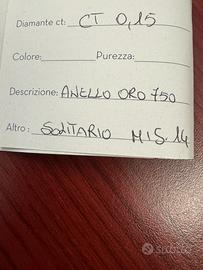 Diamante ct: CT 0,15
Colore: Purezza:
Descrizione: ANELLO ORO 750
Altro: SOLITARIO MIS. 14